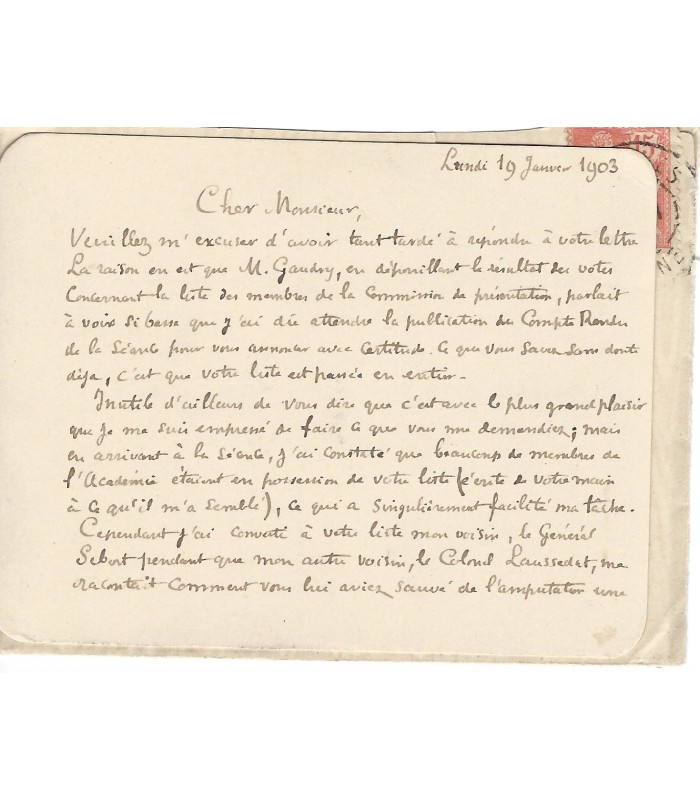 15
Lundi 19 Janvier 1903
Cher Monsieur,
Veuillez m'excuser d'avoir tant tardé à répondre à votre lettre
La raison en est que M. Gaudry, en dépouillant le résultat des votes
Concernant la liste des membres de la Commission de présentation, parlait
à voix si basse que j'ai dû attendre la publication du Compte Rendu
de la Séance pour vous annoncer avec certitude. Ce que vous savez sans doute
déja, c'est que votre liste est passée en entier -
Inutile d'ailleurs de vous dire que c'est avec le plus grand plaisir
que je me suis empressé de faire ce que vous me demandiez; mais
en arrivant à la Séance, j'ai constaté que beaucoup de membres de
l'Académie étaient en possession de votre liste (écrite de votre main
à ce qu'il m'a semblé), ce qui a singulièrement facilité ma tâche.
Cependant j'ai converti à votre liste mon voisin, le Général
Sebert pendant que mon autre voisin, le Colonel Laussedat, me
racontait comment vous lui aviez sauvé de l'amputation une